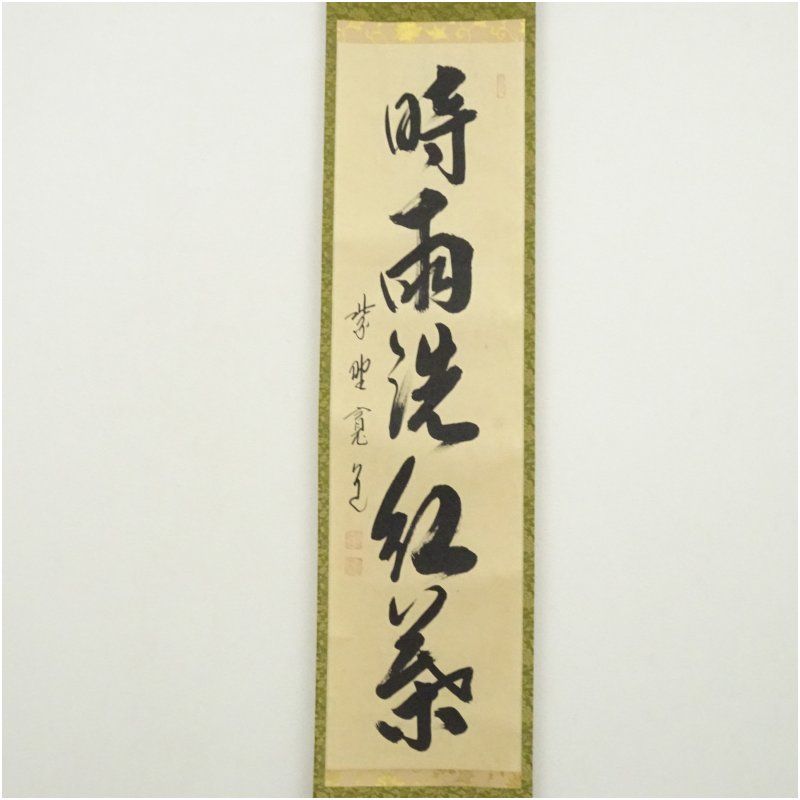 時雨洗紅葉
紫野寛道